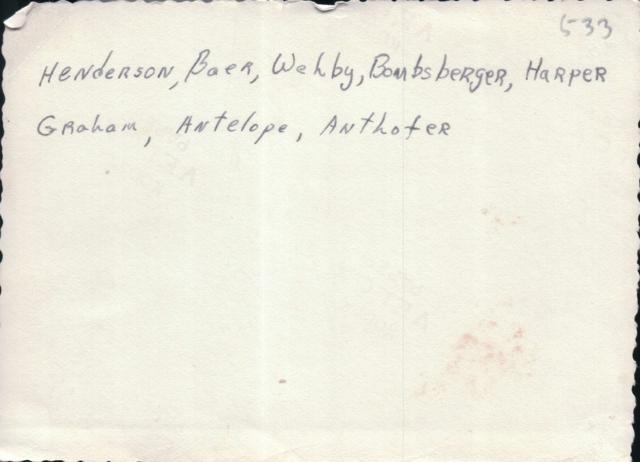 533
Henderson, Baer, Wehby, Bombsberger, Harper
Graham, Antelope, Anthofer